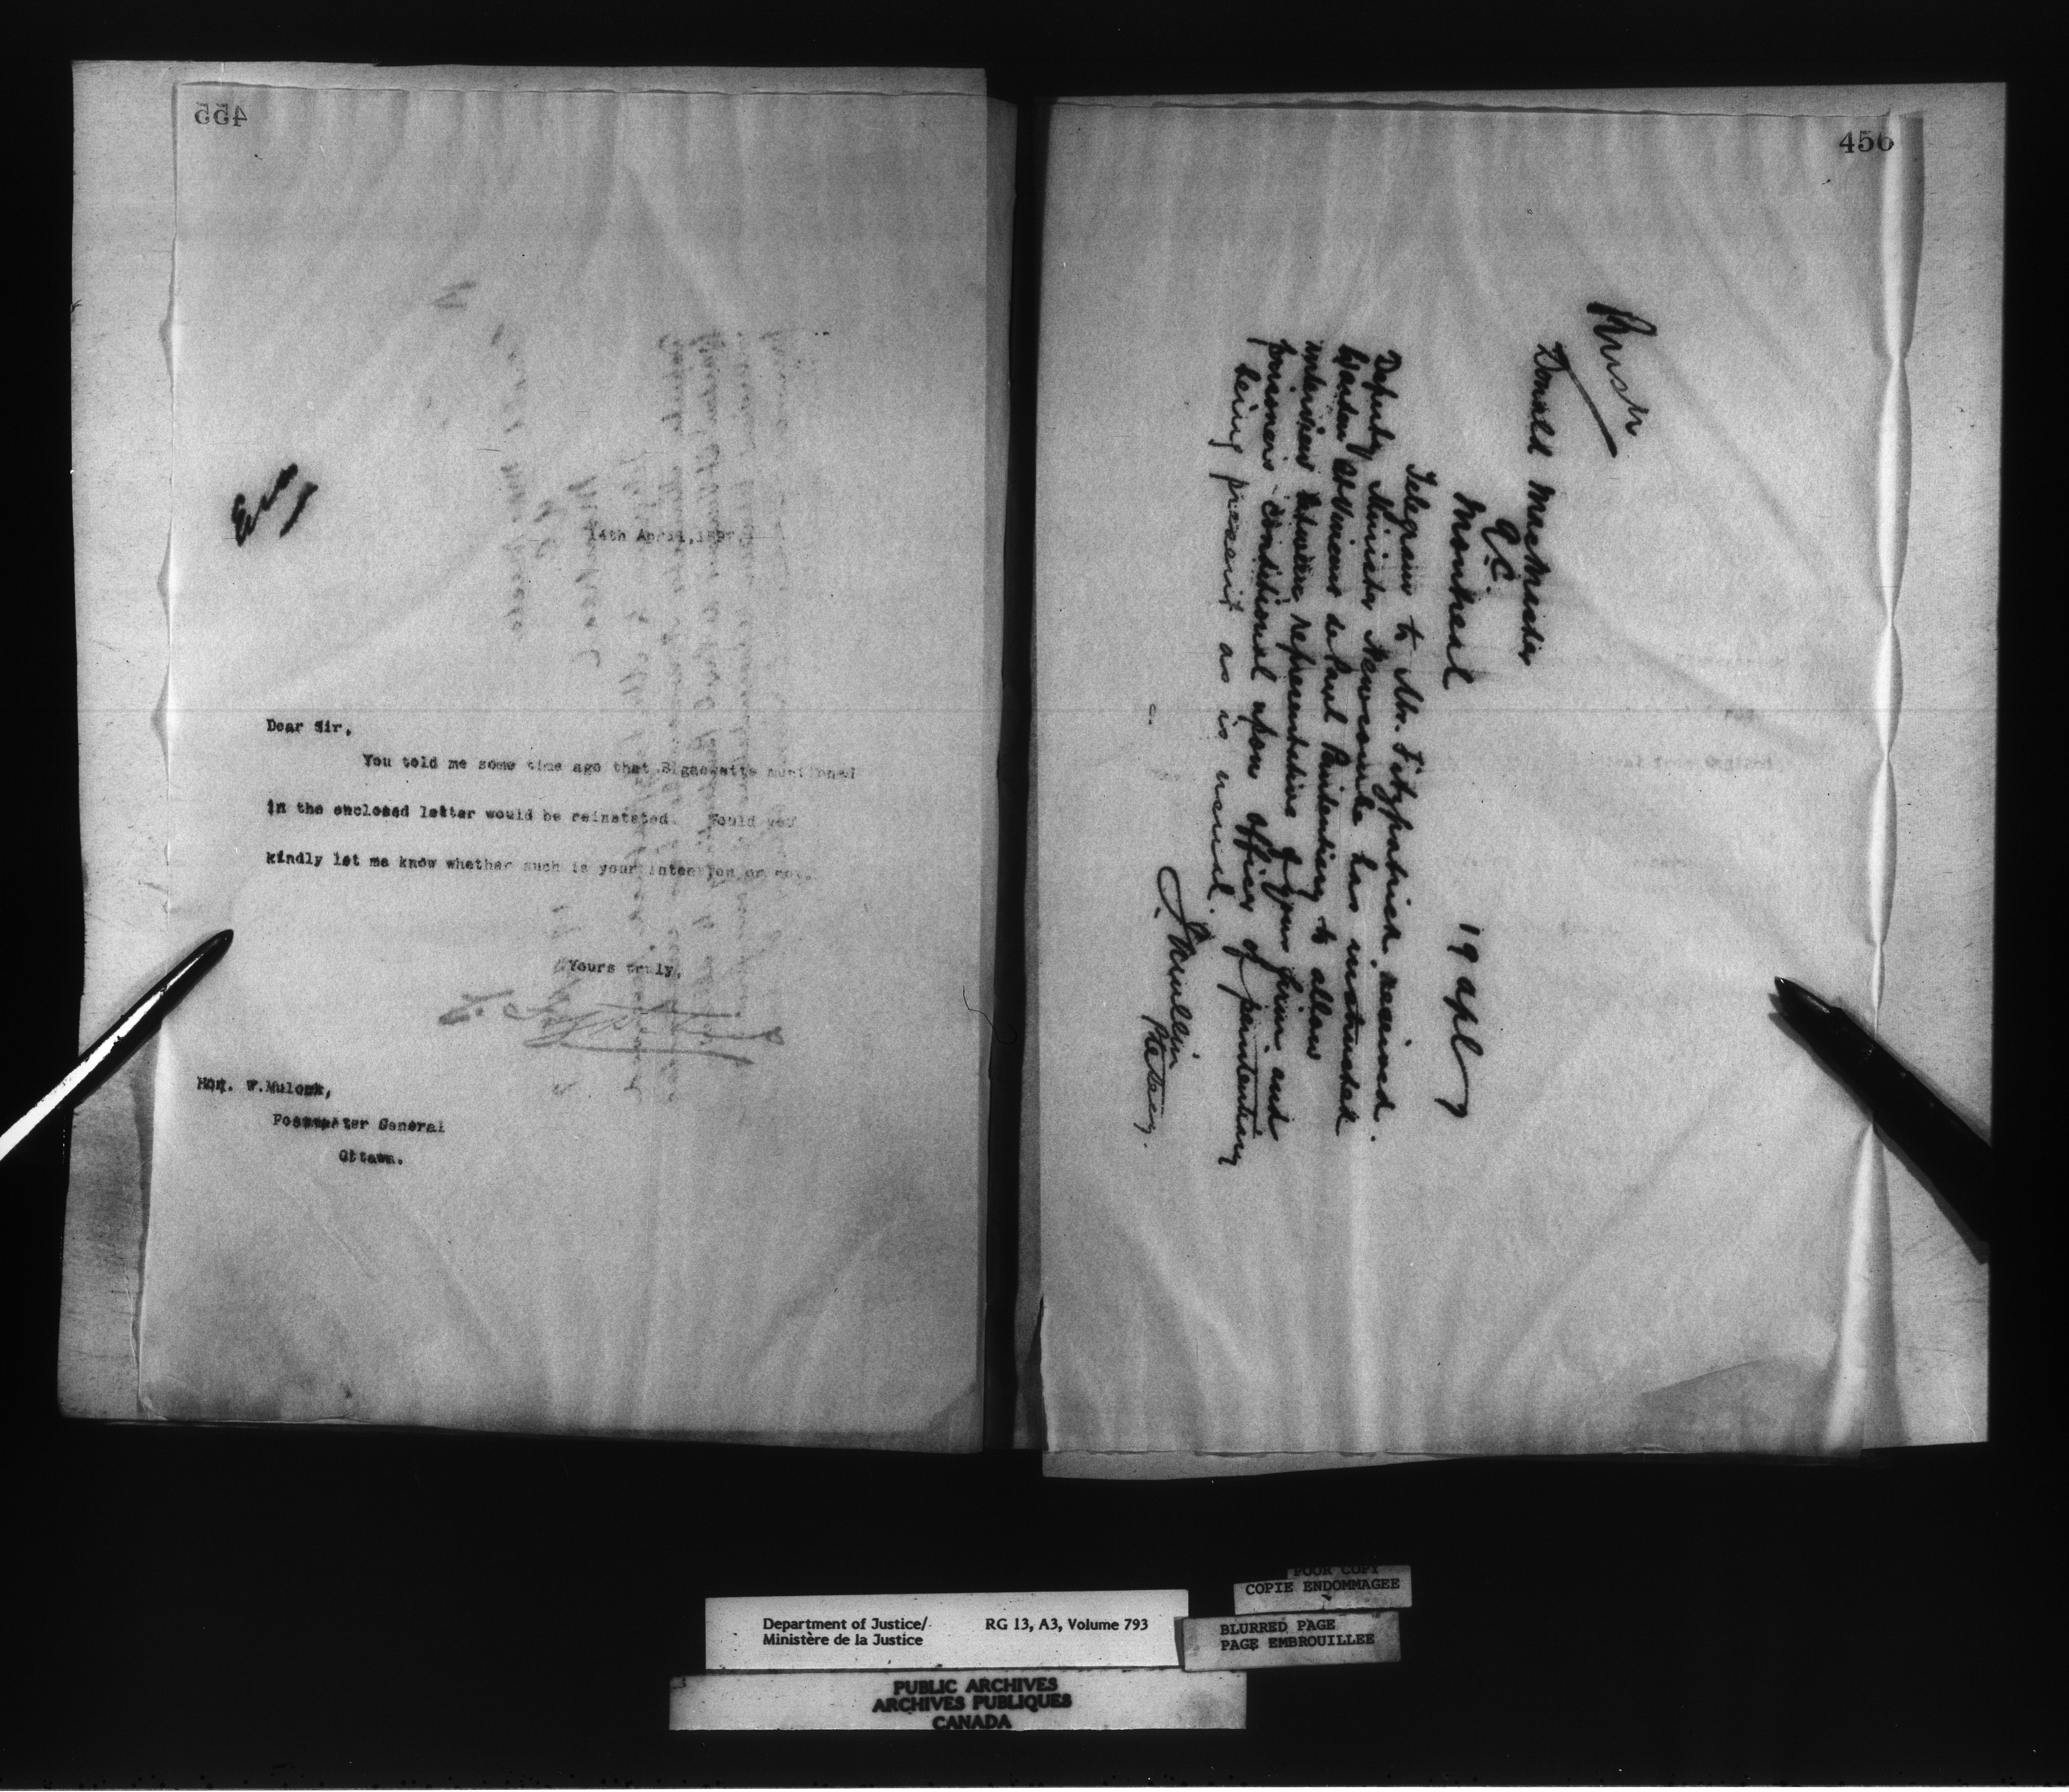 455
14th April, 1897.
Dear Sir,
You told me some time ago that mentioned
in the enclosed letter would be reinstated. Would you
kindly let me know whether such is your intention or not.
Yours truly,
Hon. W. Mulock,
Postmaster General
Ottawa.
456
Rush
Donald MacMaster
Q.C.
Montreal
19 apl
Telegram to Mr. Fitzpatrick received.
Deputy Minister Newcombe has instructed
Warden St Vincent de Paul Penitentiary to allow
interview between representative of your firm and
prisoners conditional upon officer of penitentiary
being present as is usual.
Department of Justice/
Ministère de la Justice
RG 13, A3, Volume 793
POOR COPY
COPIE ENDOMMAGEE
BLURRED PAGE
PAGE EMBROUILLEE
PUBLIC ARCHIVES
ARCHIVES PUBLIQUES
CANADA